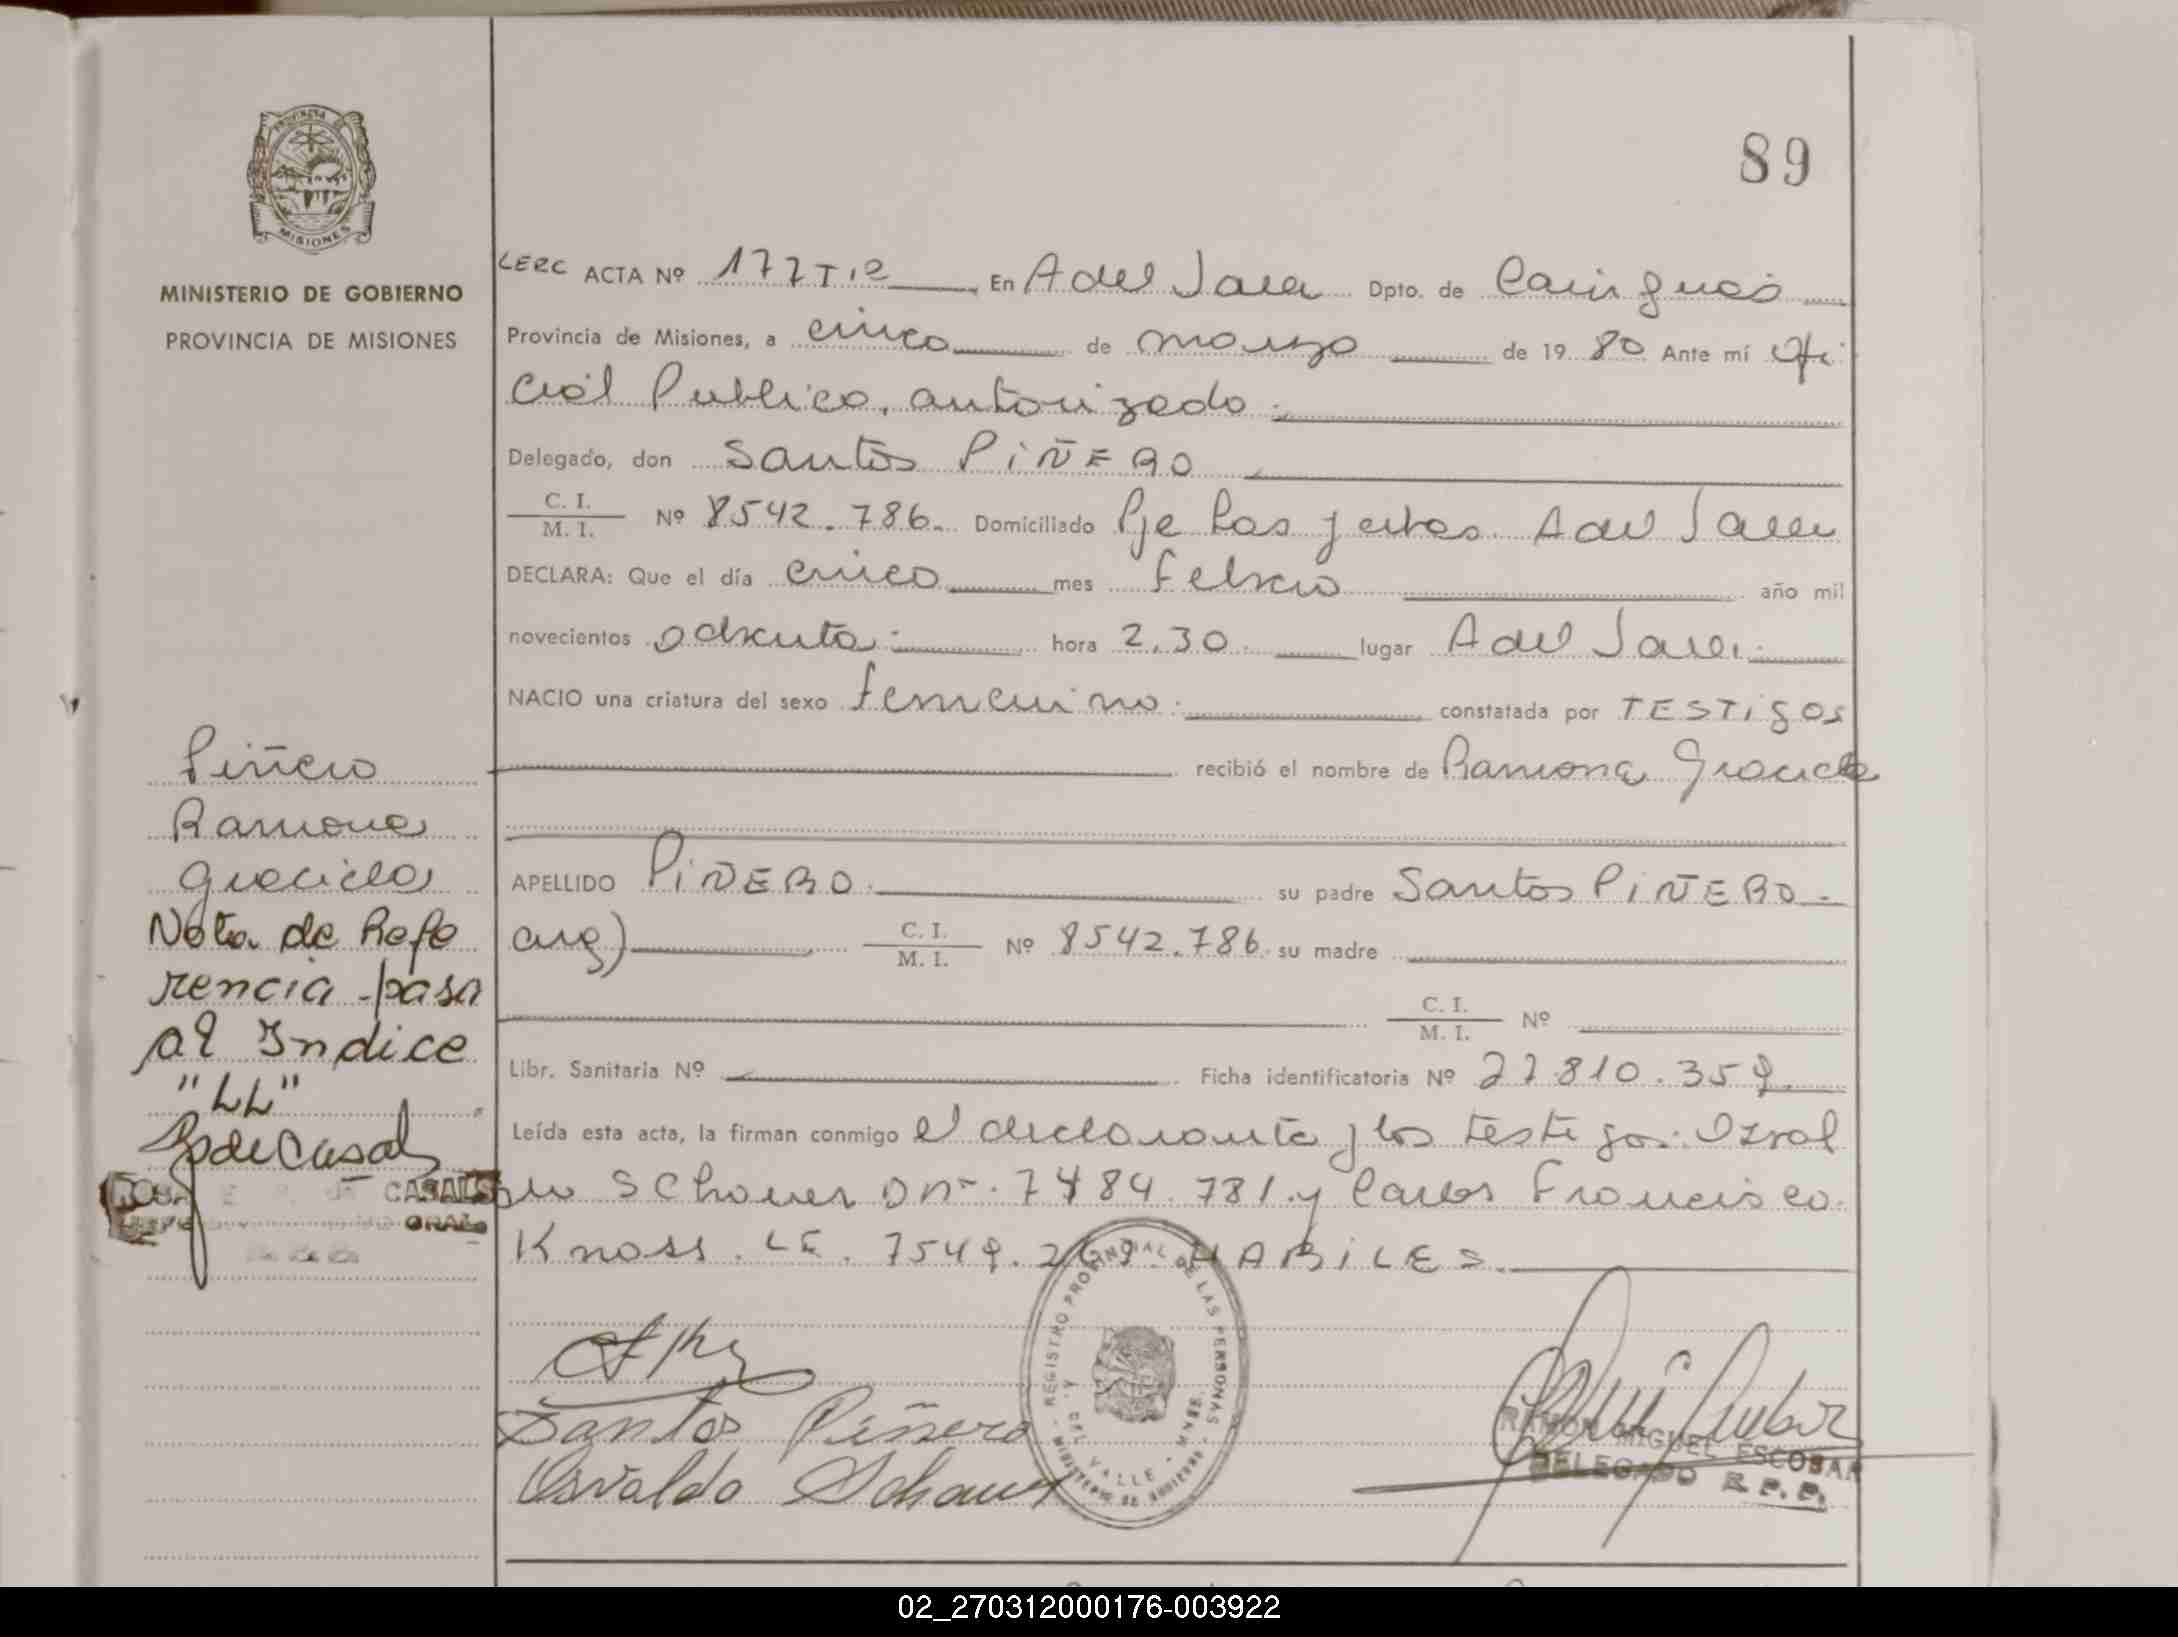 PROVINCIA DE
MISIONES
MINISTERIO DE GOBIERNO
PROVINCIA DE MISIONES
89
LERC ACTA Nº 177 T.12 En A del Valle Dpto. de Cainguas
Provincia de Misiones, a cinco de marzo de 1980 Ante mí Ofi
cial Publico, autorizado
Delegado, don Santos PIÑERO
C. I.
M. I. Nº 8542.786. Domiciliado Pje Las yerbas A del Valle
DECLARA: Que el día cinco mes Febrero año mil
novecientos ochenta hora 2,30 lugar A del Valle
NACIO una criatura del sexo Femenino constatada por TESTIGOS
recibió el nombre de Ramona Graciela
APELLIDO PIÑERO su padre Santos PIÑERO
arg) C. I.
M. I. Nº 8542.786 su madre
C. I.
M. I. Nº
Libr. Sanitaria Nº Ficha identificatoria Nº 27.810.359
Leída esta acta, la firman conmigo el declarante y los testigos: Osval
do Schauer Dni. 7484.781 y Carlos Francisco
Knass. LE. 7549.269. HABILES
Santos Piñero
Osvaldo Schauer
REGISTRO PROVINCIAL DE LAS PERSONAS
A. DEL VALLE - MNES.
MINISTERIO DE GOBIERNO
RAMON MIGUEL ESCOBAR
DELEGADO R. P. P.
Piñero
Ramona
Graciela
Nota de Refe
rencia pasa
al Indice
"LL"
RdeCasals
ROSA E. de CASALS
02_270312000176-003922